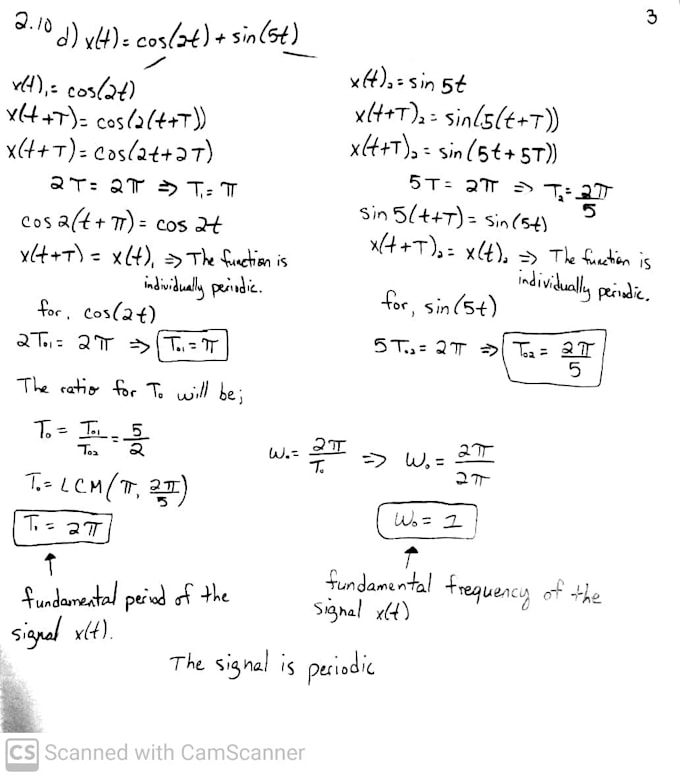 3
2.10 d) x(t) = cos(2t) + sin(5t)
x(t)₁ = cos(2t)
x(t+T) = cos(2(t+T))
x(t+T) = cos(2t+2T)
2T = 2π ⇒ T₁ = π
cos 2(t+π) = cos 2t
x(t+T) = x(t), ⇒ The function is
individually periodic.
for, cos(2t)
2T₀₁ = 2π ⇒ T₀₁ = π
x(t)₂ = sin 5t
x(t+T)₂ = sin(5(t+T))
x(t+T)₂ = sin(5t+5T))
5T = 2π ⇒ T₂ = 2π/5
sin 5(t+T) = sin(5t)
x(t+T)₂ = x(t)₂ ⇒ The function is
individually periodic.
for, sin(5t)
5T₀₂ = 2π ⇒ T₀₂ = 2π/5
The ratio for T₀ will be;
T₀ = T₀₁/T₀₂ = 5/2
T₀ = LCM(π, 2π/5)
T₀ = 2π
↑
fundamental period of the
signal x(t).
W₀ = 2π/T₀ ⇒ W₀ = 2π/2π
W₀ = 1
↑
fundamental frequency of the
signal x(t)
The signal is periodic
CS Scanned with CamScanner